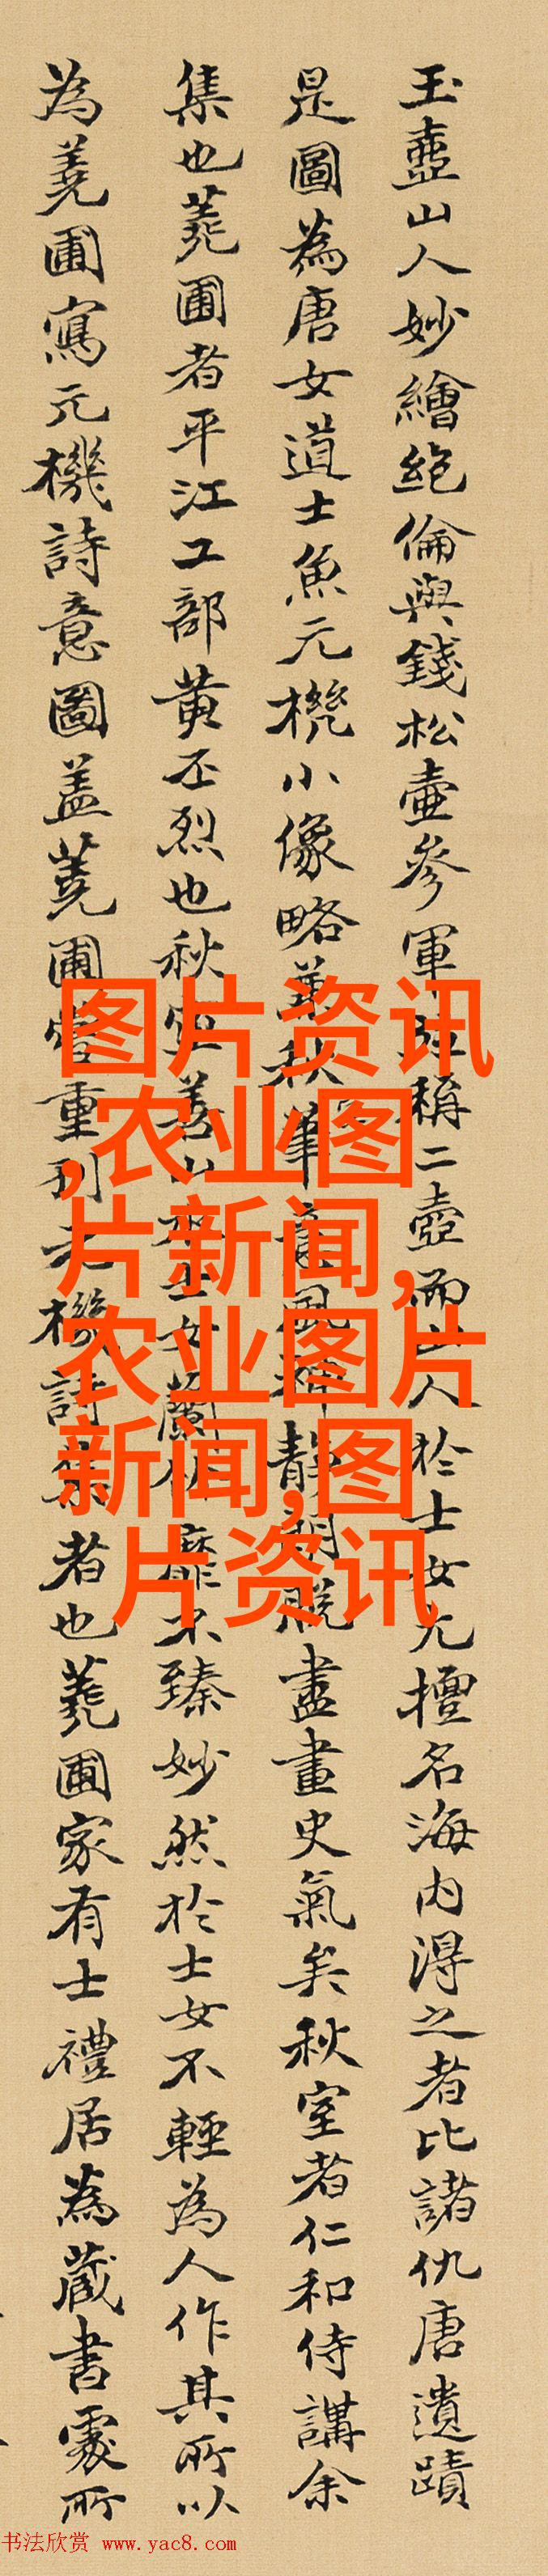 玉壺山人妙繪絶倫與錢松壺參軍 稱二壺而山人於士女尤擅名海内得之者比諸仇唐遺蹟
是圖為唐女道士魚元機小像略兼秋 筆意風 靜 脱盡畫史氣矣秋室者仁和侍講余
集也蕘圃者平江工部黄丕烈也秋室善山水士女蘭竹靡不臻妙然於士女不輕為人作其所以
為蕘圃寫元機詩意圖盖蕘圃嘗重刊元機詩集者也蕘圃家有士禮居為蔵書處所
图片资讯
,农业图
片新闻,
农业图片
新闻,图
片资讯
书法欣赏 www.yac8.com